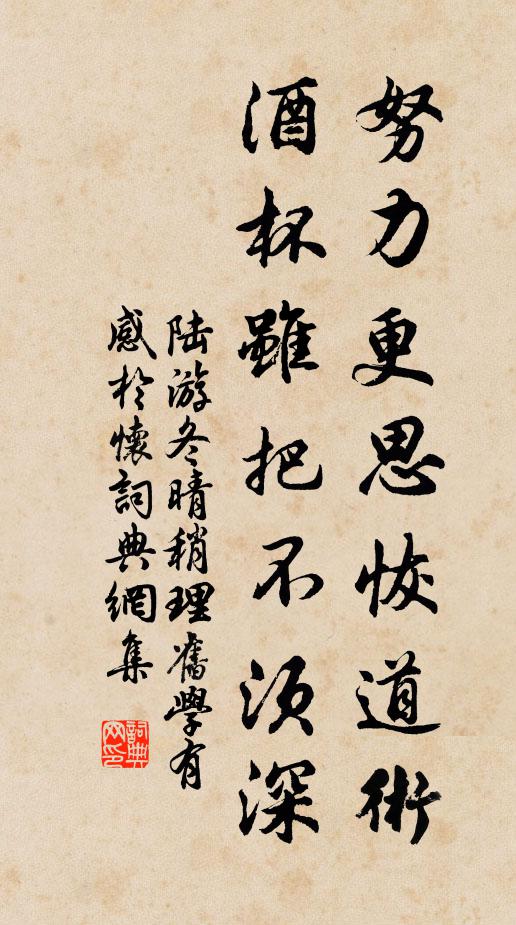 努力更思恢道術
酒杯雖把不須深
陸游冬晴稍理舊學有
感於懷詞典網集
詞典
网印